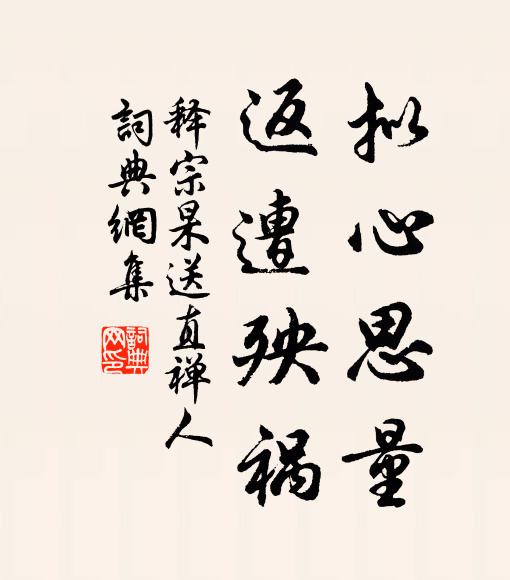 拟心思量
返遭殃祸
释宗杲送直禅人
詞典網集
詞典网印